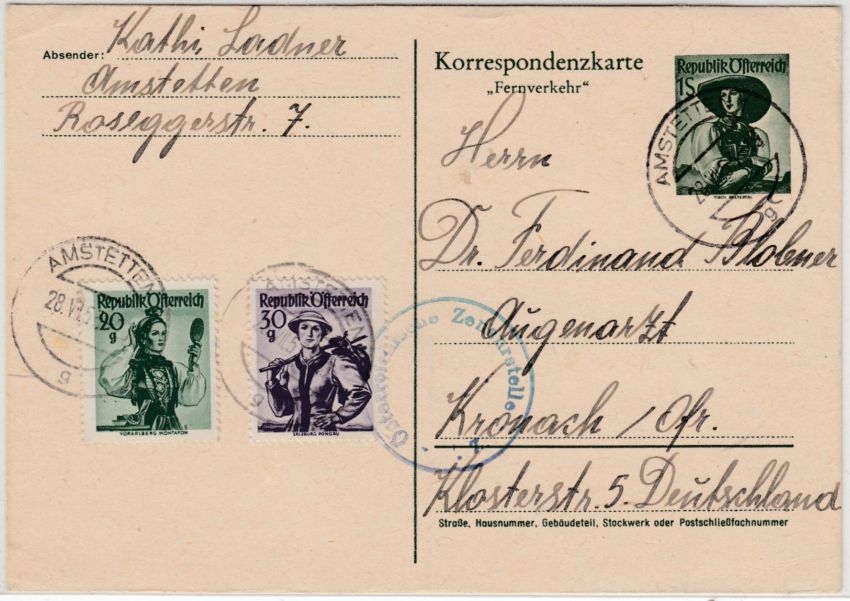 Absender: Kathi Ladner
Amstetten
Roseggerstr. 7.
Korrespondenzkarte
„Fernverkehr“
Republik Österreich
1S
TIROL PUSTERTAL
AMSTETTEN
Herrn
Dr. Ferdinand Blobner
Augenarzt
Kronach / Ofr.
Klosterstr. 5. Deutschland
Straße, Hausnummer, Gebäudeteil, Stockwerk oder Postschließfachnummer
AMSTETTEN
28. VII. 5
g
Republik Österreich
20
g
VORARLBERG MONTAFON
AMSTETTEN
g
Republik Österreich
30
g
SALZBURG PONGAU
Österreichische Zensurstelle